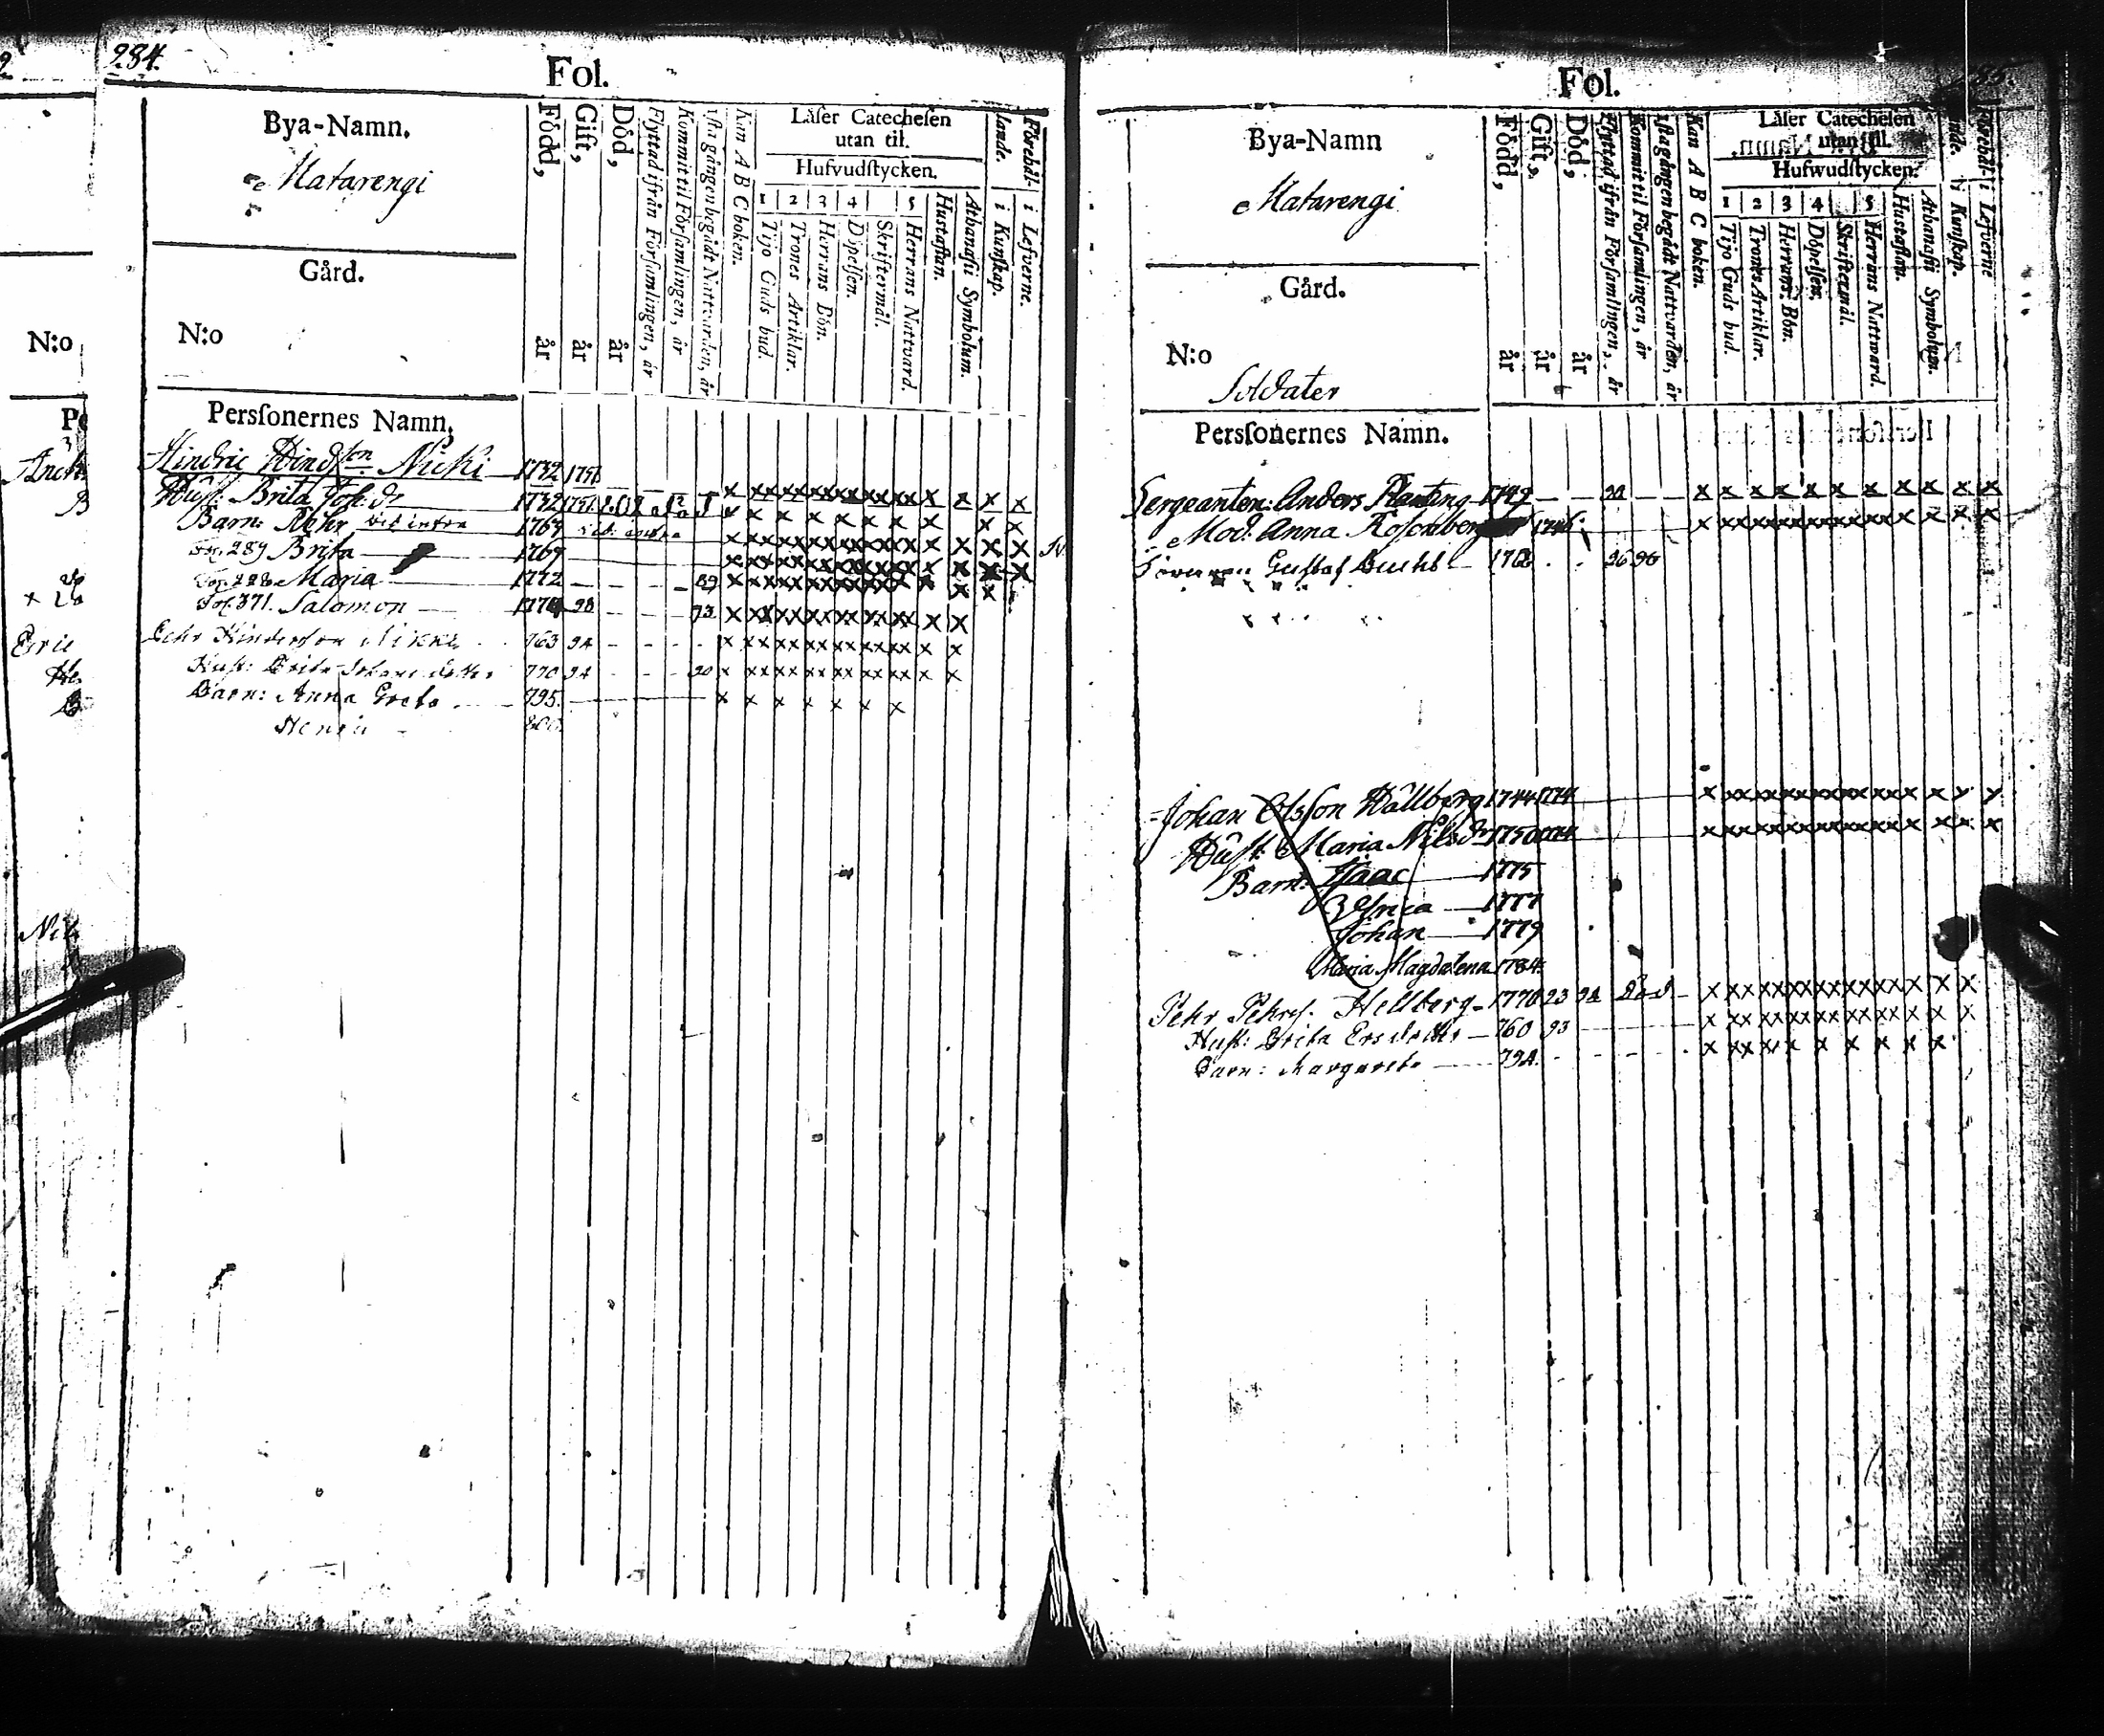 284.
Fol.
Bya-Namn.
Matarengi
Gård.
N:o
Perſonernes Namn.
Född, år
Gift, år
Död, år
Flyttad ifrån Förſamlingen, år
Kommit til Förſamlingen, år
1ſta gången begådt Nattvarden, år
Kan A B C boken.
Läſer Catecheſen
utan til.
Hufvudſtycken.
1 2 3 4 5
Tijo Guds bud.
Trones Artiklar.
Herrans Bön.
Döpelſen.
Skriftermål.
Herrans Nattvard.
Huſtaflan.
Athanaſii Symbolum.
Förehål-
lande.
i Kunſkap.
i Lefverne.
Hindric Hindſson Nicki 1732
Huſt. Brita Joh.dr 1732
Barn: Pehr vid infra
Fol. 289 Brita 1769
Maria 1772 89
Fol. 371. Salomon 93
Pehr Hindersson Nikki 763 94
Huſt: Brita Johansdotter 770 94 90
Barn: Anna Greta 795.
800.
Fol.
Bya-Namn
Matarengi
Gård.
N:o
Soldater
Perſonernes Namn.
Född, år
Gift, år
Död, år
Flyttad ifrån Förſamlingen, år
Kommit til Förſamlingen, år
1ſta gången begådt Nattvarden, år
Kan A B C boken.
Läſer Catecheſen
utan til.
Hufwudſtycken.
1 2 3 4 5
Tijo Guds bud.
Trones Artiklar.
Herrans Bön.
Döpelſen.
Skriftermål.
Herrans Nattward.
Huſtaflan.
Athanaſii Symbolum.
i Kunſkap.
i Lefverne
Sergeanten: Anders Planting 1749
Mod. Anna Roſenberg
Gustaf 96 96
Johan Olsſon Wällberg 1744 1774
Huſt. Maria Nilsdr 1750
Barn: Iſaac 1775
1777
Johan 1779
Maria Magdalena 1784.
Pehr Pehrſ. Hellberg 1770 93 94 Död
Huſt: Brita Ersdotter 760 93
Barn: Margareta 794.